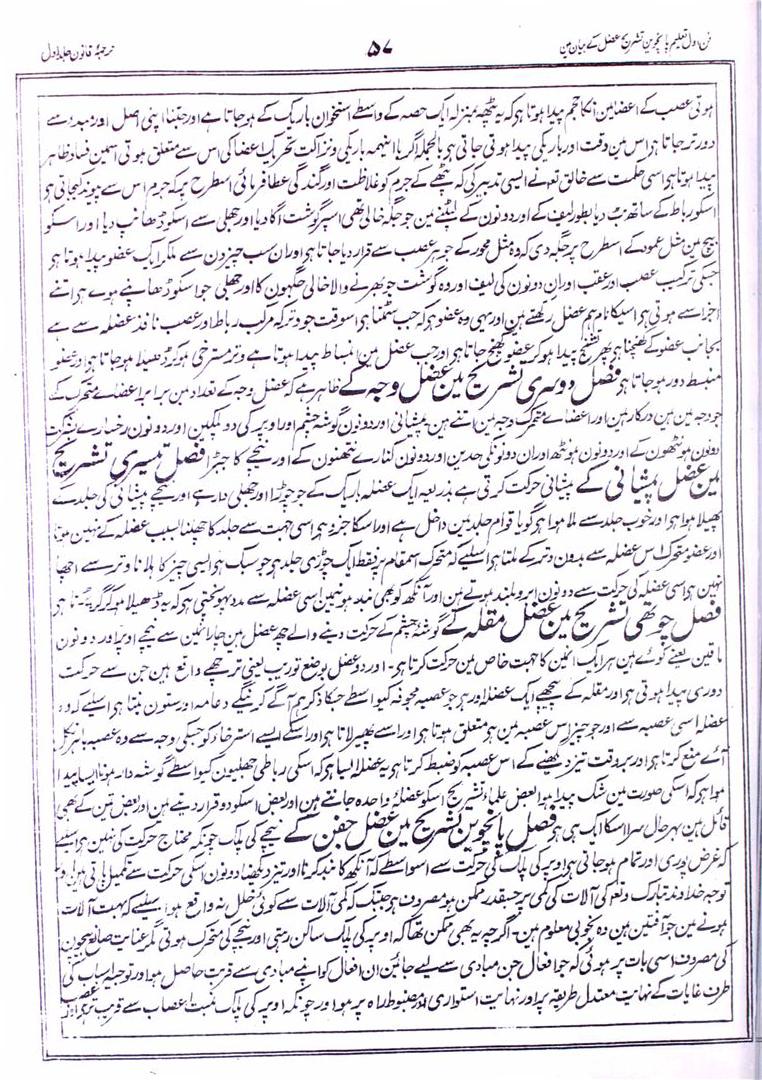 فن اول تعلیم پانچوین تشریح عضل کے بیان مین ۵۷ ترجمۂ قانون جلد اول
ہوتی عصب کے اعضا مین انکا حجم پیدا ہوتا ہر کہ یہ پٹھہ بمنزلہ ایک حصہ کے واسطے استخوان باریک کے ہوجاتا ہے اور جتنا اپنی اصل اور مبدء سے
دور تر جاتا ہر اس مین وقت اور باریکی پیدا ہوتی جاتی ہر بالجملہ اگر با اینہمہ باریکی و نزاکت تحریک اعضا کی اس سے متعلق ہوتی اسمین فساد ظاہر
پیدا ہوتا ہر اسی حکمت سے خالق تعہ نے ایسی تدبیر کی کہ پٹھے کے جرم کو غلاظت اور گندگی عطا فرمائی اسطرح پر کہ جرم اس سے پیوند کھاجاتی ہر
اسکو رباط کے ساتھ بٹ دیا بطور لیف کے اور دونون کے لپٹنے مین جو جگہ خالی تھی اسپر گوشت اگا دیا اور جھلی سے اسکو ڈھانپ دیا اور اسکو
بیچ مین مثل عمود کے اسطرح پر جگہ دی کہ وہ مثل محور کے جوہر عصب سے قرار دیا جاتا ہر اور ان سب چیزون سے ملکر ایک عضو پیدا ہوتا ہر
جسکی ترکیب عصب اور عقب اور ان دونون کی لیف اور وہ گوشت جو بھرنے والا خالی جگہون کا اور جھلی جو اسکو ڈھانپنے ہوے ہر اتنے
اجزا سے ہوتی ہر اسیکا نام ہم عضل رکھتے ہین اور یہی وہ عضو ہر کہ جب سمٹتا ہر اسوقت جو وتر کہ مرکب رباط اور عصب نافذ عضلہ سے ہے
بجانب عضو کے کھینچتا ہر پھر تشنج پیدا ہو کر عضو کھچ جاتا ہر اور جب عضل مین انبساط پیدا ہوتا ہے وتر مسترخی ہو کر ڈھیلا ہوجاتا ہر اور عضو
منبسط دور ہوجاتا ہر فصل دوسری تشریح مین عضل وجہ کے ظاہر ہے کہ عضل وجہ کے تعداد مین برابر اعضاے متحرک کے
جو وجہ مین ہین درکار ہین اور اعضاے متحرک وجہ مین اتنے ہین پیشانی اور دونون گوشہ چشم اور اوپر کی دو پلکین اور دونون رخسارے بشرکت
دونون ہونٹھون کے اور دونون ہونٹھ اور ان دونونکی حدین اور دونون کنارے نتھنون کے اور نیچے کا جبڑا فصل تیسری تشریح
مین عضل پیشانی کے پیشانی حرکت کرتی ہے بذریعہ ایک عضلہ باریک کے جو چوڑا اور جھلی دار ہے اور نیچے پیشانی کی جلد کے
پھیلا ہوا ہر اور خوب جلد سے ملا ہوا ہر گویا قوام جلد مین داخل ہے اور اسکا جزو ہر اسی جہت سے جلد کا چھیلنا بسبب عضلہ کے نہین ہوتا
اور عضو متحرک اس عضلہ سے بدون وتر کے ملتا ہر اسلیے کہ متحرک اسمقام پر فقط ایک چوڑی جلد ہر جو سبک ہر ایسی چیز کا ہلانا وتر سے اچھا
نہین ہر اسی عضلہ کی حرکت سے دونون ابرو بلند ہوتے ہین اور آنکھ کو بھی بند ہونیمین اسی عضلہ سے مدد پہونچتی ہر کہ یہ ڈھیلا ہو کر گر پڑتا ہر
فصل چوتھی تشریح مین عضل مقلہ کے گوشۂ چشم کے حرکت دینے والے چھ عضل ہین چار انمین سے نیچے اوپر اور دونون
ماقین یعنے کوے مین ہر ایک انمین کا جہت خاص مین حرکت کرتا ہر۔ اور دو عضل بوضع توریب یعنی ترچھے واقع ہین جن سے حرکت
دوری پیدا ہوتی ہر اور مقلہ کے پیچھے ایک عضلہ اور ہر جو عصبہ مجوفہ کیواسطے جسکا ذکر ہم آگے کرینگے دعامہ اور ستون بنتا ہر اسلیے کہ وہ
عضلہ اسی عصبہ سے اور جو چیز اس عصبہ مین ہر متعلق ہوتا ہر اور اسے پھیر لاتا ہر اور اسکے ایسے استرخاء کو جسکی وجہ سے وہ عصبہ باہر نکل
آئے منع کرتا ہر اور بروقت تیز دیکھنے کے اس عصبہ کو ضبط کرتا ہر یہ عضلہ ایسا ہر کہ اسکی رباطی جھلیون کیواسطے گوشہ دار ہونا ایسا پیدا
ہوا ہر کہ اسکی صورت مین شک پیدا ہوا بعض علماء تشریح اسکو عضلۂ واحدہ جانتے ہین اور بعض اسکو دو قرار دیتے ہین اور بعض تین کے بھی
قائل ہین بہرحال سرا اسکا ایک ہی ہر فصل پانچوین تشریح مین عضل جفن کے نیچے کی پلک چونکہ محتاج حرکت کی نہین ہر اسلیے
کہ غرض پوری اور تمام ہوجاتی ہر اوپر کی پلک کی حرکت سے اسواسطے کہ آنکھ کا بند کرنا اور تیز دیکھنا دونون اسکی حرکت سے تکمیل پاتی ہین اور
توجہ خداوند تبارک و تعہ کی آلات کی کمی پر جسقدر ممکن ہو مصروف ہر جبتک کہ کمی آلات سے کوئی خلل نہ واقع ہو اسلیے کہ بہت آلات
ہونے مین جو آفتین ہین وہ بخوبی معلوم ہین۔ اگرچہ یہ بھی ممکن تھا کہ اوپر کی پلک ساکن رہتی اور نیچے کی متحرک ہوتی مگر عنایت صانع بیچون
کی مصروف اسی بات پر ہوئی کہ جو افعال جن مبادی سے لیے جائین ان افعال کو اپنے مبادی سے قربت حاصل ہو اور توجیہ اسباب کی
طرف غایات کے نہایت معتدل طریقہ پر اور نہایت استواری اور مضبوط راہ پر ہو اور چونکہ اوپر کی پلک بہ نسبت اعصاب سے قریب تر ہر اور عصب